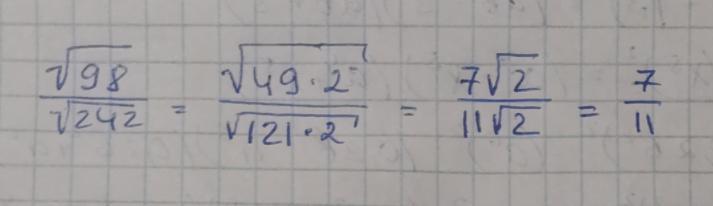 √98/√242 = √(49·2)/√(121·2) = 7√2/11√2 = 7/11